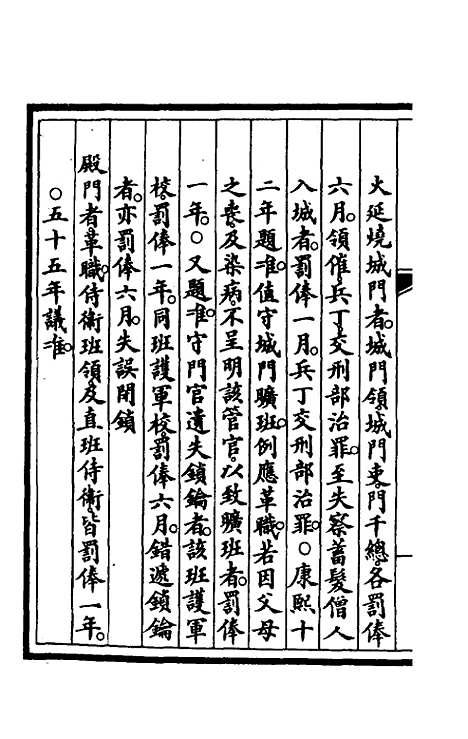 火延燒城門者。城門領。城門吏。門千總。各罰俸
六月。領催兵丁。交刑部治罪。至失察蓄髮僧人
入城者。罰俸一月。兵丁交刑部治罪。○康熙十
二年題准。值守城門曠班。例應革職。若因父母
之喪。及染病。不呈明該管官。以致曠班者。罰俸
一年。○又題准。守門官遺失鎖鑰者。該班護軍
校。罰俸一年。同班護軍校。罰俸六月。錯遞鎖鑰
者。亦罰俸六月。失誤閉鎖
殿門者。革職。侍衛班領。及直班侍衛。皆罰俸一年。
○五十五年議准。